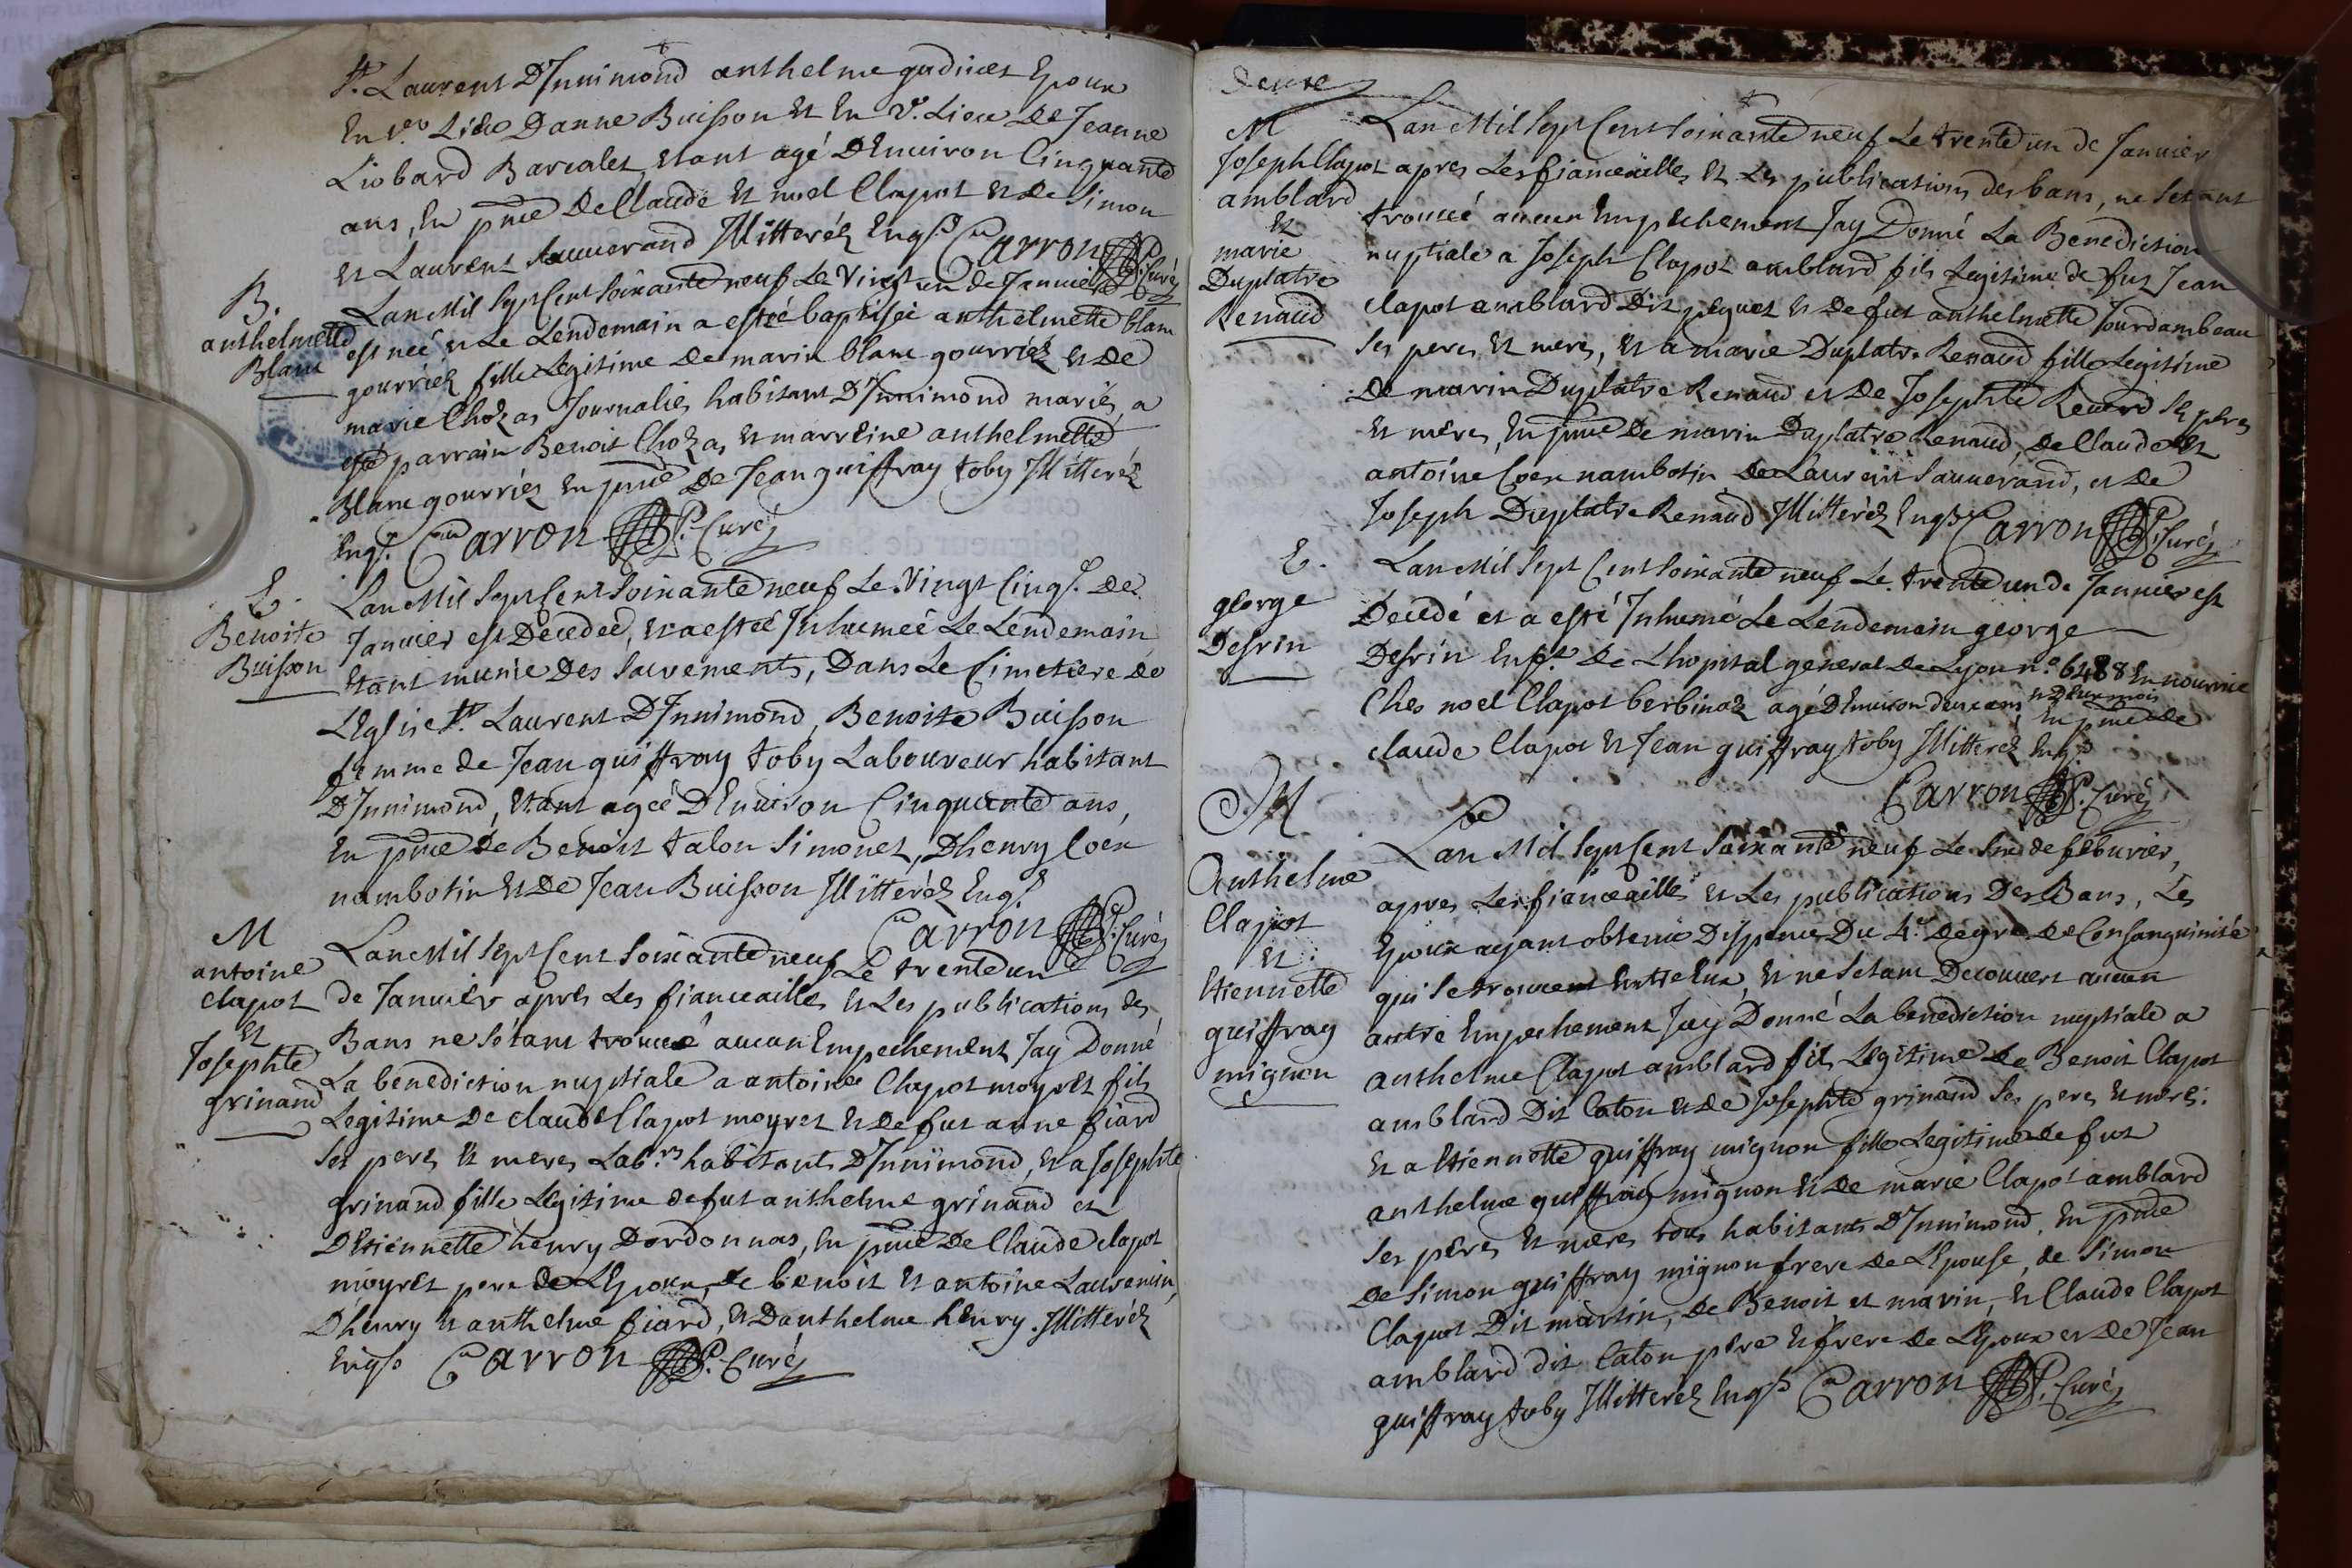 St. Laurent D'Innimond anthelme gudinet Epoux
En 1er Lieu Danne Buisson Et En 2d. Lieu De Jeanne
Liobard Barcalet, Etant agé DEnuiron Cinquante
ans, En pnce De Claude Et noel Clapot Et De Simon
Et Laurent Sauuerand Illitteréz Enqs Carron P. Curéz
B.
anthelmette
Blanc
Lan Mil Sept Cent Soixante neuf Le Vingt un de Januier
est neé et Le Lendemain a estée baptisée anthelmette blanc
gourriéz fille Legitime de marin blanc gourriéz et de
marie Chozas Journalies habitant D'Innimond mariés, a
esté parrain Benoit Chozas et marreine anthelmette
Blanc gourriéz En pnce De Jean guiffray toby Illitteréz
Enqs. Carron P. Curéz
E.
Benoite
Buisson
Lan Mil Sept Cent Soixante neuf Le Vingt Cinqe. De
Januier est Decedeé, et a esteé Inhumeé Le Lendemain
Etant munie Des Sacrements, Dans Le Cimetiere de
LEglise St. Laurent D'Innimond, Benoite Buisson
femme de Jean guiffray toby Laboureur habitant
D'Innimond, Etant ageé DEnuiron Cinquante ans,
En pnce De Benoit talon Simonet, Dhenry Coen
nambotin Et De Jean Buisson Illitteréz Enqs.
Carron P. Curéz
M
antoine
Clapot
Et
Josephte
grinand
Lan Mil Sept Cent Soixante neuf Le trente un
de Januier apres Les fiancailles et Les publications des
Bans ne S'étant trouué aucun Empechement Jay Donné
La benediction nuptiale a antoine Clapot moyret fils
Legitime De claude Clapot moyret Et De fut anne fiard
Ses peres Et meres Labrs habitants D'Innimond, Et a Josephte
grinand fille Legitime defut anthelme grinand et
DEtiennette henry Dordonnas, En pnce De Claude clapot
moyret pere De LEpoux, de benoit Et antoine Laurencin,
Dhenry Et anthelme fiard, Et Danthelme henry. Illitteréz
Enqs Carron P. Curéz
Deuxe
M
Joseph Clapot
amblard
Et
marie
Duplatre
Renaud
Lan Mil Sept Cent Soixante neuf Le trente un de Januier
apres Les fiancailles Et Les publications des bans, ne Setant
trouué aucun Empechement Jay Donné La Benediction
nuptiale a Joseph Clapot amblard fils Legitime de fut Jean
clapot amblard Dit piquet et De fut anthelmette Jourdambeau
Ses peres Et meres, Et a marie Duplatre Renaud fille Legitime
De marin Duplatre Renaud et De Josephte Reuerd Ses peres
Et meres, En pnce De marin Duplatre Renaud, de Claude Et
antoine Coen nambotin, de Laurent Sauuerand, et De
Joseph Duplatre Renaud Illitteréz Enqs Carron P. Curéz
E.
george
Desrin
Lan Mil Sept Cent Soixante neuf Le trente un de Januier est
Decedé et a esté Inhumé Le Lendemain george
Desrin Enft. De Lhopital general De Lyon no. 6488 En nourrice
Ches noel Clapot berbinaz agé DEnuiron deux ans et Deux mois En pnce de
claude Clapot Et Jean guiffray toby Illitteréz Enqs
Carron P. Curéz
M
Anthelme
Clapot
Et
Etiennette
guiffray
mignon
Lan Mil Sept Cent Soixante neuf Le Six de feburier,
apres Les fiancailles Et Les publications Des Bans, Les
Epoux ayant obtenu Dispence Du 4e. Degré De Consanguinité
qui Se trouuent Entre Eux, Et ne Setant Decouuert aucun
autre Empechement Jay Donné La benediction nuptiale a
anthelme Clapot amblard fils Legitime De Benoit Clapot
amblard Dit Caton Et De Josephte grinand Ses peres Et meres:
Et a Etiennette guiffray mignon fille Legitime De fut
anthelme guiffray mignon Et De marie Clapot amblard
Ses pères Et meres tous habitants D'Innimond, En pnce
De Simon guiffray mignon frere de LEpouse, de Simon
Clapot Dit martin, De Benoit et marin, Et Claude Clapot
amblard dit Caton pere Et frere De LEpoux et De Jean
guiffray toby Illitteréz Enqs Carron P. Curéz